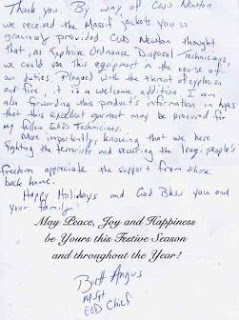 Thank You. By way of CWO Newton
we received the Massif jackets you so
graciously provided. CWO Newton thought
that, as Explosive Ordnance Disposal Technicians,
we could use this equipment in the course of
our duties. Plagued with the threat of explosion
and fire, it is a welcome addition. I am
also forwarding this product's information in hopes
that this excellent garment may be procured for
my fellow EOD Technicians.
More importantly, knowing that we here
fighting the terrorists and securing the Iraqi people's
freedom appreciate the support from those
back home.
Happy Holidays and God Bless you and
your family!
May Peace, Joy and Happiness
be Yours this Festive Season
and throughout the Year!
Brit Angus
MSgt
EOD Chief